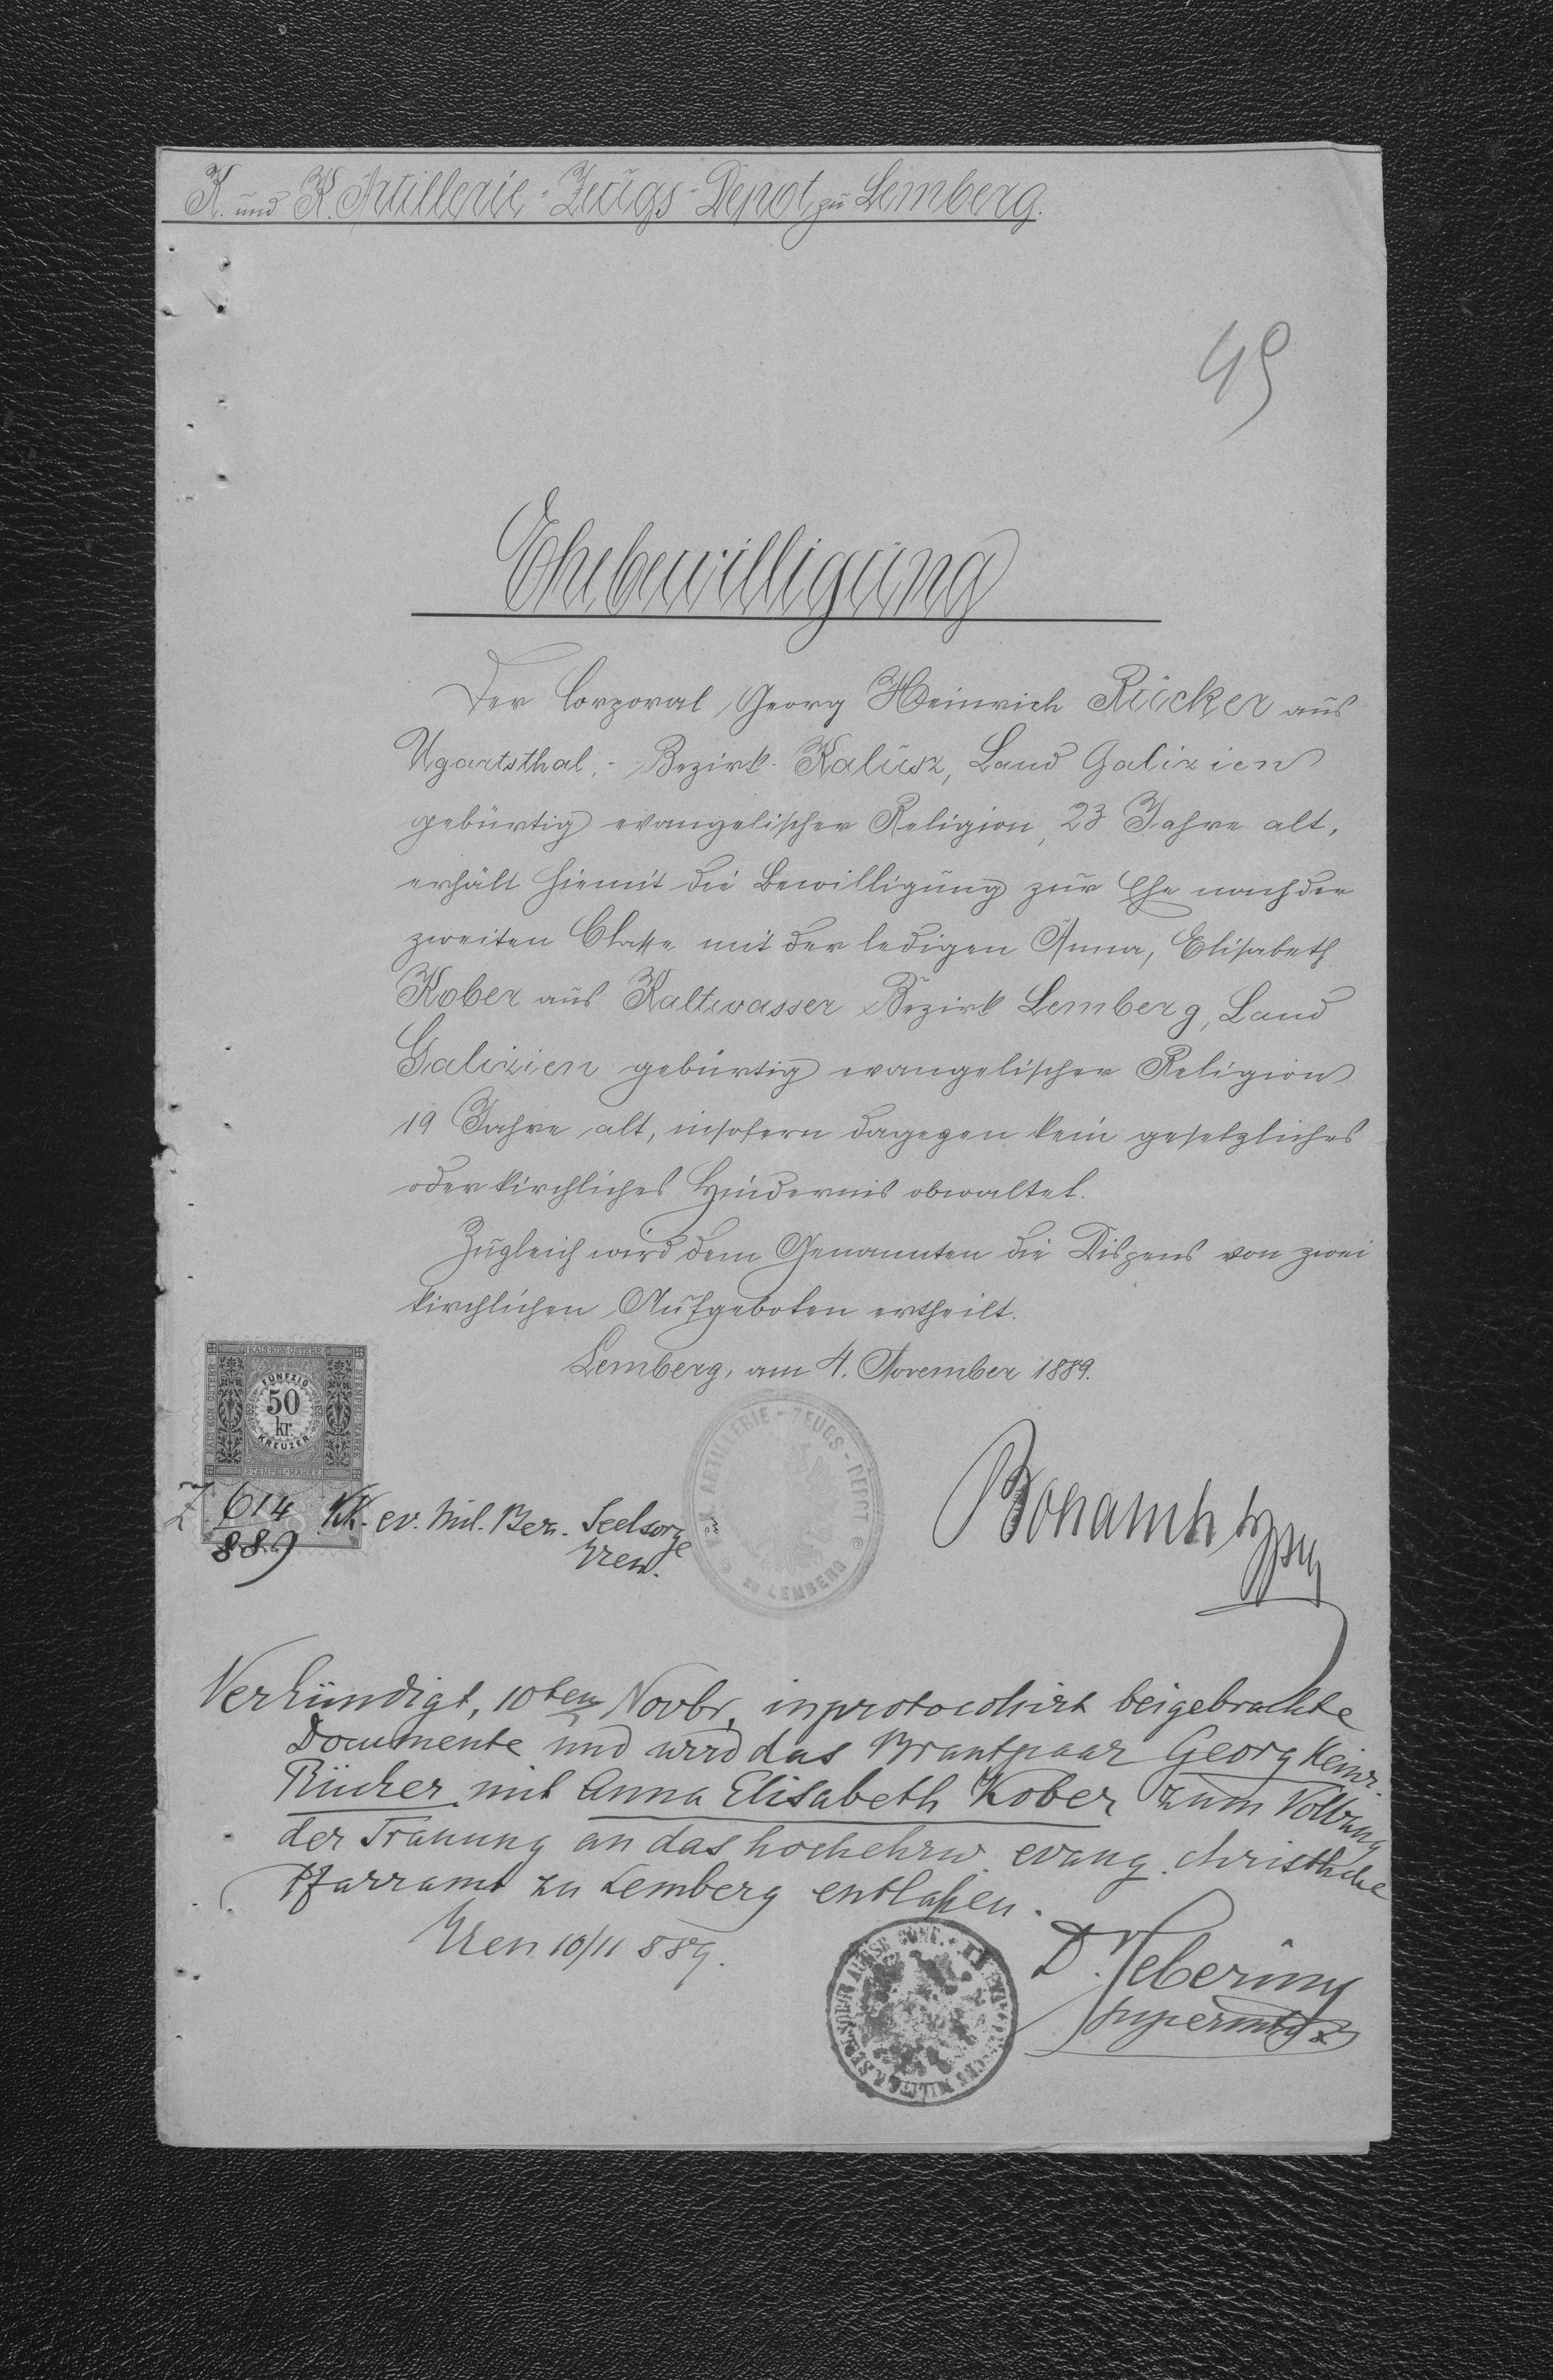 K. und K. Artillerie-Zeugs-Depot zu Lemberg.
49
Ehebewilligung
Der Corporal Georg Heinrich Rücker aus
Ugartsthal, Bezirk Kalusz, Land Galizien
gebürtig evangelischer Religion, 23 Jahre alt,
erhält hiemit die Bewilligung zur Ehe nach der
zweiten Classe mit der ledigen Anna, Elisabeth
Kober aus Kaltwasser Bezirk Lemberg, Land
Galizien gebürtig evangelischer Religion
19 Jahre alt, insofern dagegen kein gesetzliches
oder kirchliches Hindernis obwaltet.
Zugleich wird dem Genannten die Dispens von zwei
kirchlichen Aufgeboten ertheilt.
Lemberg, am 4. November 1889.
KAIS. KÖN. ÖSTERR.
STEMPEL-MARKE
FÜNFZIG
50
kr.
KREUZER
STEMPEL-MARKE
ARTILLERIE-ZEUGS-DEPOT
zu LEMBERG
Z. 614
889
KK. ev. Mil. Bez. Seelsorge
Verkündigt, 10ten Novbr, inprotocolirt beigebrachte
Documente und wird das Brautpaar Georg Heinr.
Rücker mit Anna Elisabeth Kober zum Vollzung
der Trauung an das hochehrw. evang. christliche
Pfarramt zu Lemberg entlaßen.
10/11 889.